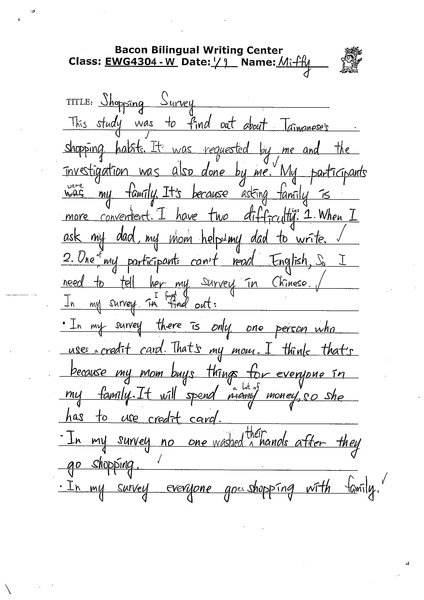 Bacon Bilingual Writing Center
Class: EWG4304 - W Date: 1/9 Name: Miffy
TITLE: Shopping Survey
This study was to find out about Taiwanese's
shopping habits. It was requested by me and the
investigation was also done by me. My participants
were
was my family. It's because asking family is
more convenient. I have two difficulty. 1. When I
ask my dad, my mom help my dad to write.
2. One my participants can't read English, so I
need to tell her my survey in Chinese.
In my survey I find out:
· In my survey there is only one person who
uses credit card. That's my mom. I think that's
because my mom buys things for everyone in
a lot of
my family. It will spend many money, so she
has to use credit card.
their
· In my survey no one washed hands after they
go shopping.
· In my survey everyone goes shopping with family.